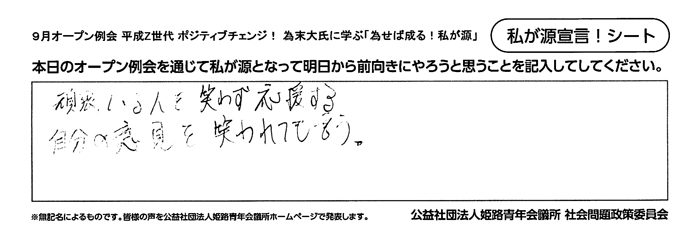 9月オープン例会 平成Z世代 ポジティブチェンジ! 為末大氏に学ぶ「為せば成る!私が源」
私が源宣言!シート
本日のオープン例会を通じて私が源となって明日から前向きにやろうと思うことを記入してしてください。
頑張っている人を笑わず応援する
自分の意見を笑われても言う。
※無記名によるものです。皆様の声を公益社団法人姫路青年会議所ホームページで発表します。
公益社団法人姫路青年会議所 社会問題政策委員会